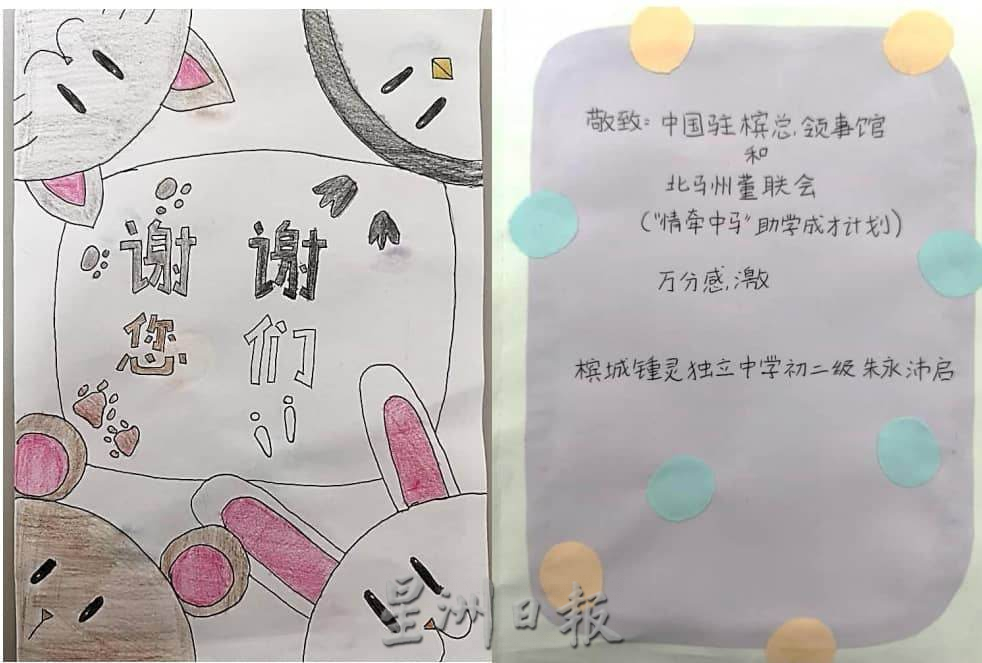 谢谢
您们
敬致：中国驻槟总领事馆
和
北马州董联会
（“情牵中马”助学成才计划）
万分感激
槟城锺灵独立中学初二级 朱永沛启
星洲日報